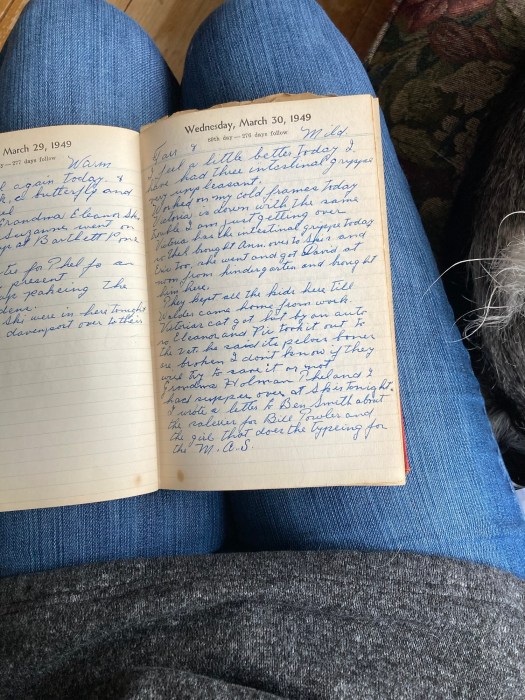 March 29, 1949
277 days follow
Warm
again today. I
a butterfly and
Grandma Eleanor Ski
Suzanne went on
at Bartlett
for Phel
present
the
Ski were in here tonight
davenport over to their
Wednesday, March 30, 1949
89th day—276 days follow
Fair & Mild.
I feel a little better today I
have had three intestinal grippe
very unpleasant.
Worked on my cold frames today
is down with the same
trouble I am just getting over
has the intestinal grippe today
so Phel brought Ann over to Ski's and
too. she went and got David at
noon from kindergarten and brought
him here.
They kept all the kids here till
came home from work.
cat got hit by an auto
so Eleanor and Pie took it out to
the vet. he said its pelvis bones
are broken I don't know if they
will try to save it or not
Grandma Holman Phel and I
had supper over at Skis tonight.
I wrote a letter to Ben Smith about
the for Bill Fowler and
the girl that does the typeing for
the M.A.S.